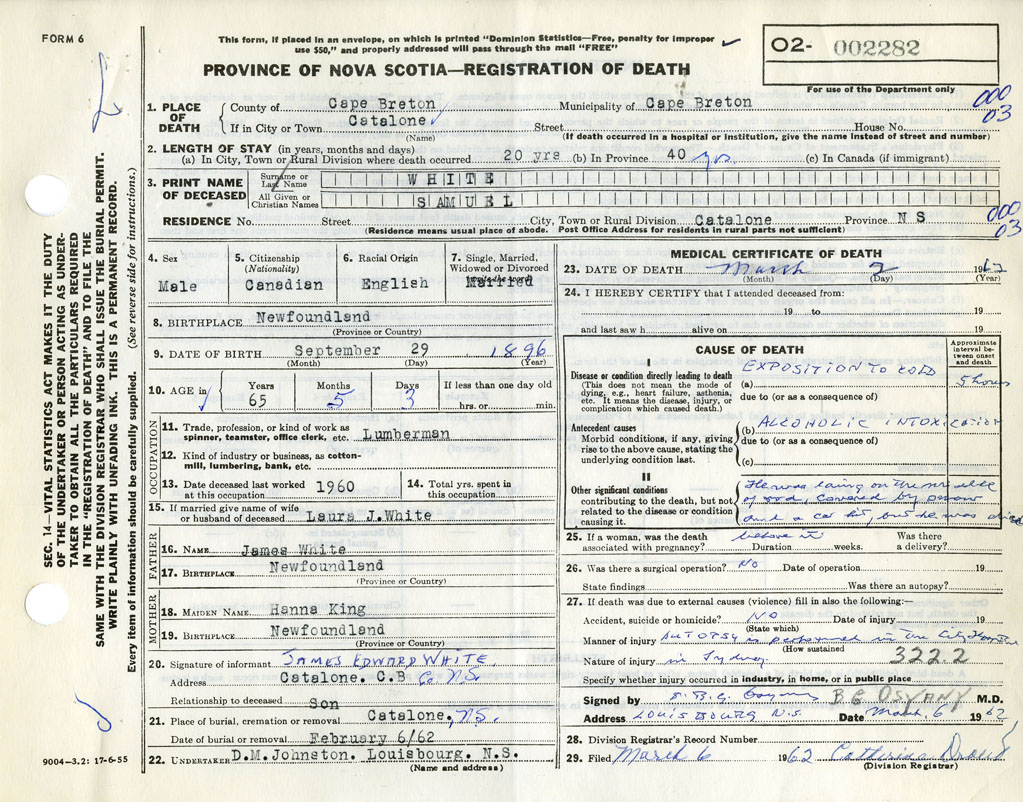 FORM 6
This form, if placed in an envelope, on which is printed "Dominion Statistics—Free, penalty for improper
use $50," and properly addressed will pass through the mail "FREE"
O2- 002282
For use of the Department only
PROVINCE OF NOVA SCOTIA—REGISTRATION OF DEATH
000
03
1. PLACE OF DEATH County of Cape Breton Municipality of Cape Breton
If in City or Town Catalone Street House No.
(Name) (If death occurred in a hospital or institution, give the name instead of street and number)
2. LENGTH OF STAY (in years, months and days)
(a) In City, Town or Rural Division where death occurred 20 yrs (b) In Province 40 yrs. (c) In Canada (if immigrant)
3. PRINT NAME OF DECEASED Surname or Last Name WHITE
All Given or Christian Names SAMUEL
RESIDENCE No. Street City, Town or Rural Division Catalone Province N S
000
03
(Residence means usual place of abode. Post Office Address for residents in rural parts not sufficient)
4. Sex Male
5. Citizenship (Nationality) Canadian
6. Racial Origin English
7. Single, Married, Widowed or Divorced Married
8. BIRTHPLACE Newfoundland
(Province or Country)
9. DATE OF BIRTH September 29 1896
(Month) (Day) (Year)
10. AGE in Years 65 Months 5 Days 3 If less than one day old hrs. or min.
OCCUPATION
11. Trade, profession, or kind of work as spinner, teamster, office clerk, etc. Lumberman
12. Kind of industry or business, as cotton-mill, lumbering, bank, etc.
13. Date deceased last worked at this occupation 1960 14. Total yrs. spent in this occupation
15. If married give name of wife or husband of deceased Laura J. White
FATHER
16. NAME James White
17. BIRTHPLACE Newfoundland
(Province or Country)
MOTHER
18. MAIDEN NAME Hanna King
19. BIRTHPLACE Newfoundland
(Province or Country)
20. Signature of informant JAMES EDWARD WHITE
Address Catalone. C.B Co. N.S.
Relationship to deceased Son
21. Place of burial, cremation or removal Catalone. N.S.
Date of burial or removal February 6/62
22. UNDERTAKER D.M.Johnston. Louisbourg. N.S.
(Name and address)
MEDICAL CERTIFICATE OF DEATH
23. DATE OF DEATH March 2 1962
(Month) (Day) (Year)
24. I HEREBY CERTIFY that I attended deceased from:
19 to 19
and last saw h alive on 19
CAUSE OF DEATH
Approximate interval between onset and death
I
Disease or condition directly leading to death
(This does not mean the mode of dying, e.g., heart failure, asthenia, etc. It means the disease, injury, or complication which caused death.)
(a) EXPOSITION TO COLD 5 hours
due to (or as a consequence of)
Antecedent causes
Morbid conditions, if any, giving rise to the above cause, stating the underlying condition last.
(b) ALCOHOLIC INTOXICATION
due to (or as a consequence of)
(c)
II
Other significant conditions contributing to the death, but not related to the disease or condition causing it.
He was laing on the middle
of road, covered by snow
and a car hit, but he was died
before it
25. If a woman, was the death associated with pregnancy? Duration weeks. Was there a delivery?
26. Was there a surgical operation? No Date of operation 19
State findings Was there an autopsy?
27. If death was due to external causes (violence) fill in also the following:—
Accident, suicide or homicide? NO Date of injury 19
(State which)
Manner of injury AUTOPSY is performed in the City Hospital
(How sustained)
Nature of injury in Sydney 322.2
Specify whether injury occurred in industry, in home, or in public place
Signed by B G OSVANY M.D.
Address LOUISBOURG N.S. Date March 6 1962
28. Division Registrar's Record Number
29. Filed March 6 1962 Catherine
(Division Registrar)
SEC. 14—VITAL STATISTICS ACT MAKES IT THE DUTY
OF THE UNDERTAKER OR PERSON ACTING AS UNDER-
TAKER TO OBTAIN ALL THE PARTICULARS REQUIRED
IN THE "REGISTRATION OF DEATH" AND TO FILE THE
SAME WITH THE DIVISION REGISTRAR WHO SHALL ISSUE THE BURIAL PERMIT.
WRITE PLAINLY WITH UNFADING INK. THIS IS A PERMANENT RECORD.
Every item of information should be carefully supplied. (See reverse side for instructions.)
9004—3.2: 17-6-55